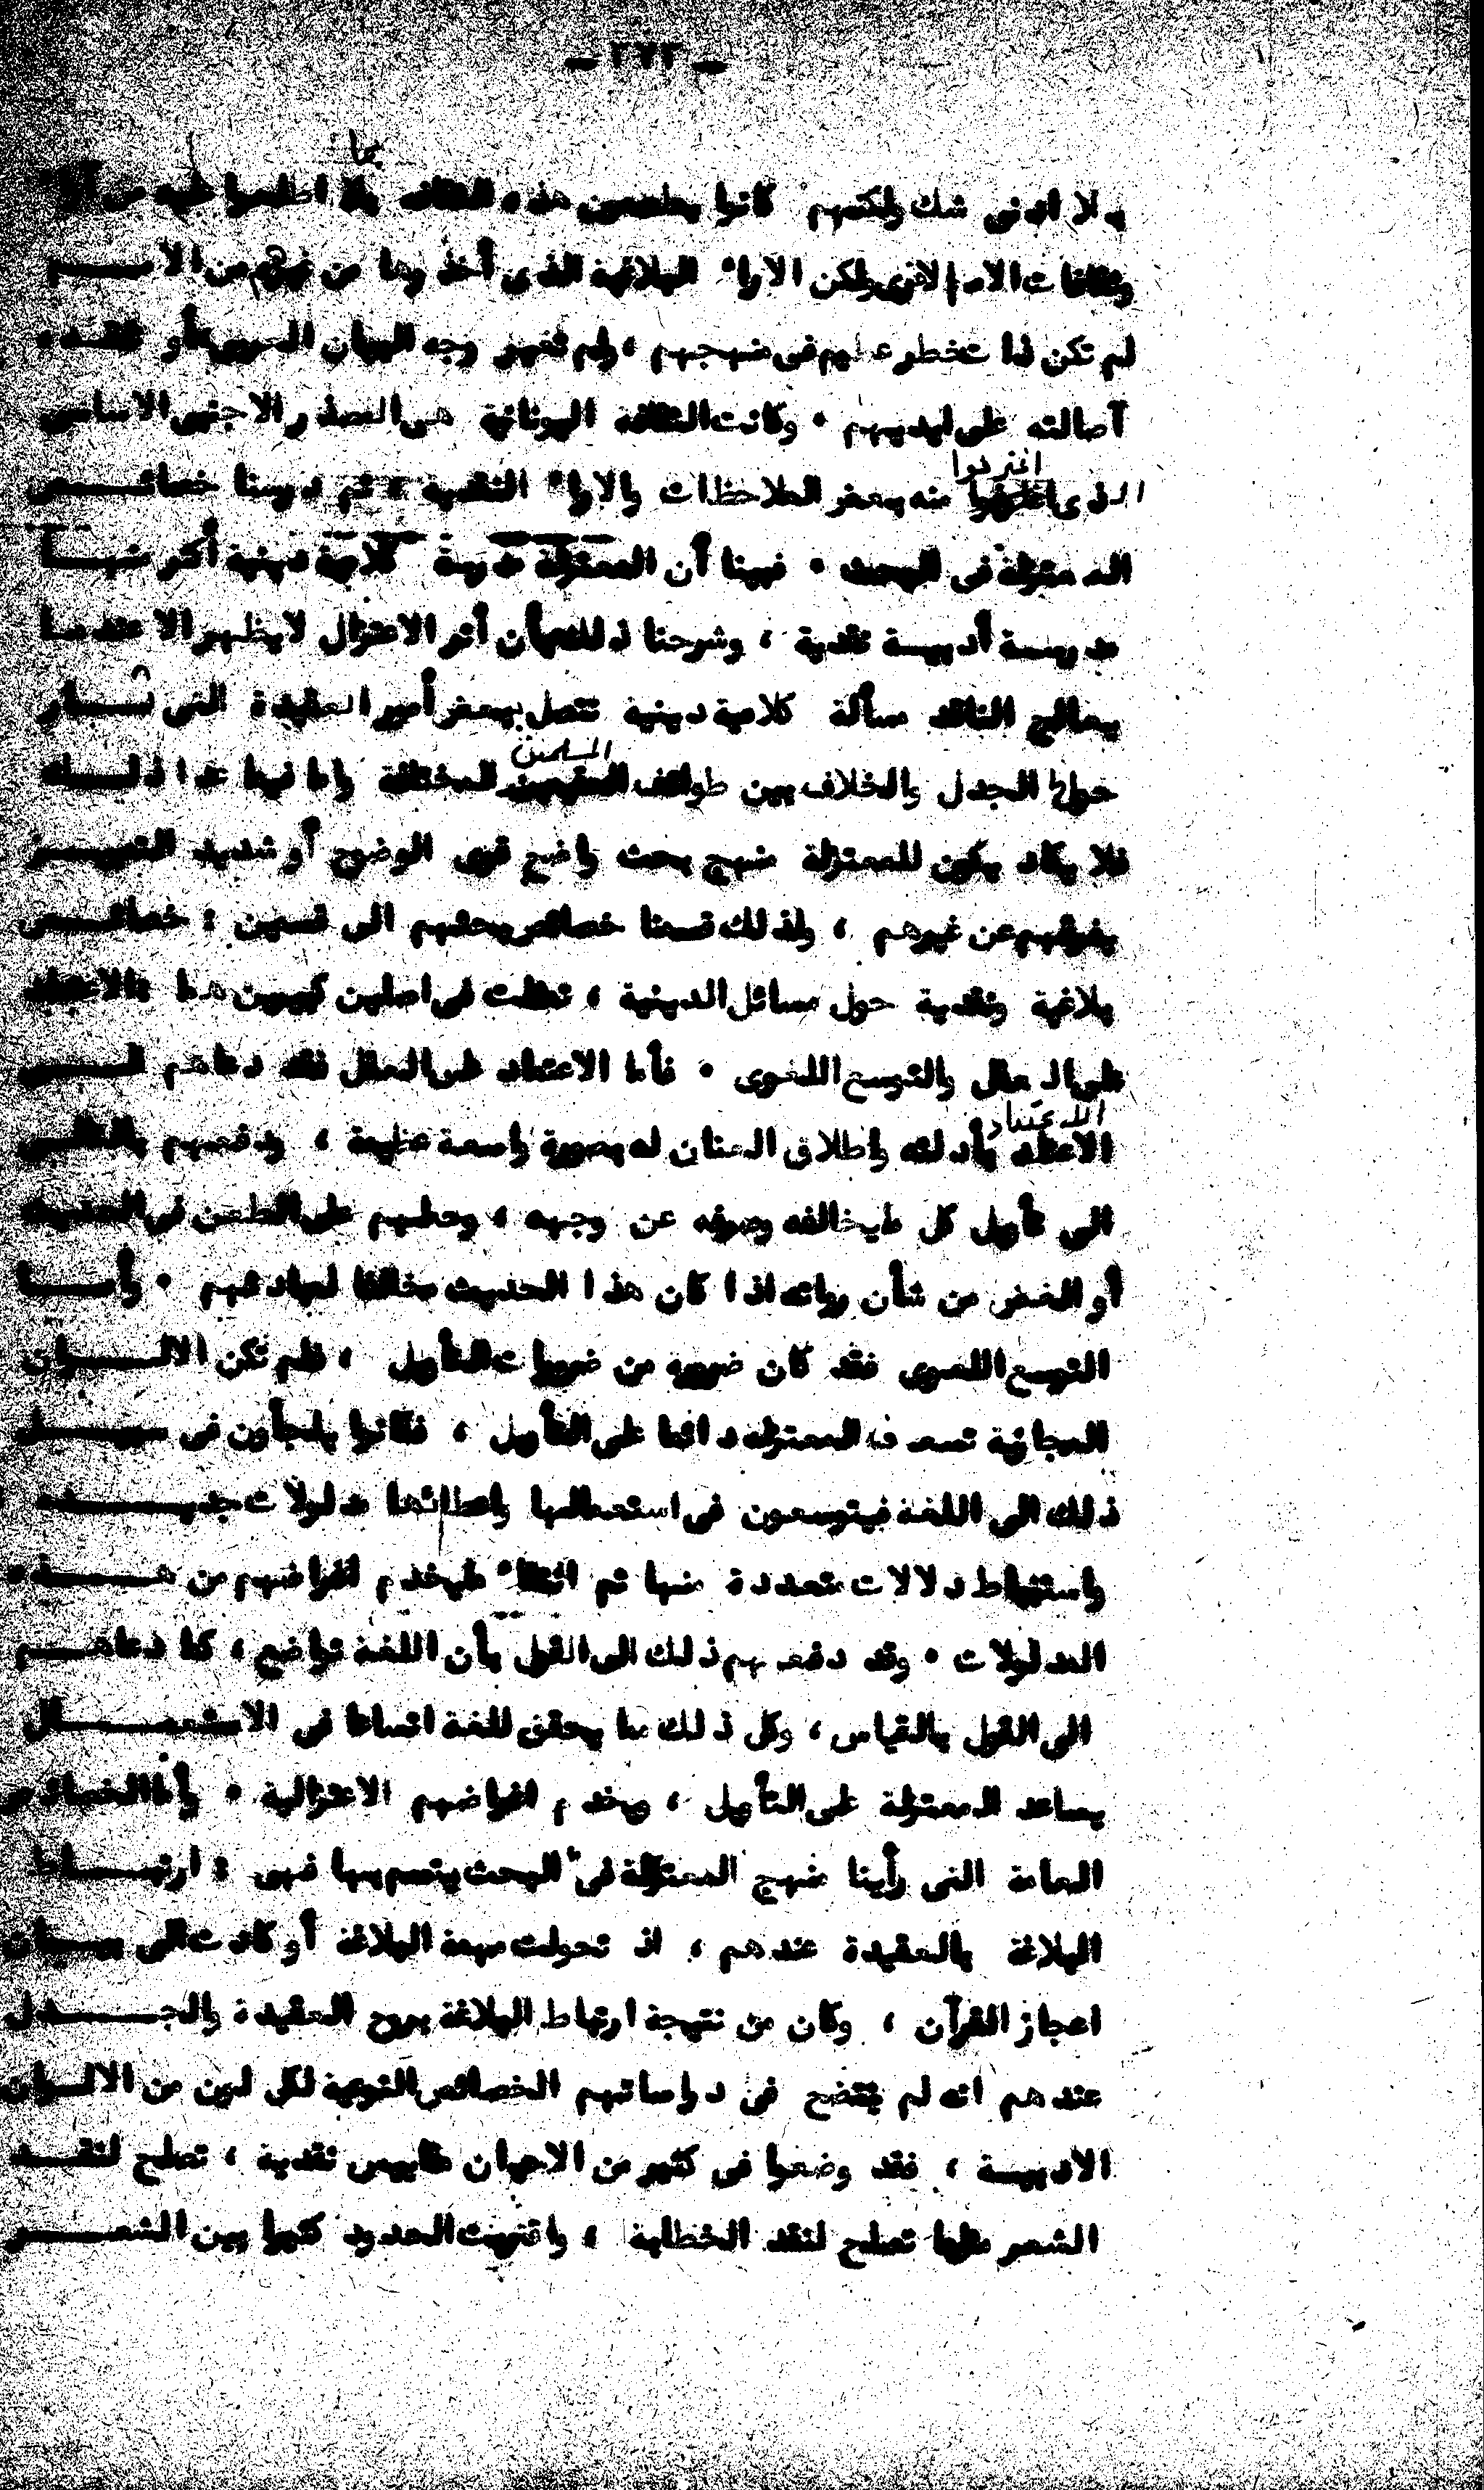 - ٢٧٢ -
بلا ادنى شك ولكنهم كانوا يطعمون هذه الثقافة بما اطلعوا عليه من آراء
وثقافات الامم الاخرى ولكن الاراء البلاغية الذى أخذوها من غيرهم من الامم
لم تكن لذا تخطر عليهم فى منهجهم ، ولم تغير وجه البيان العربى أو تفقده
آصالته على ايديهم . وكانت الثقافة اليونانية هى المصدر الاجنبى الاساسى
الذى اغترفوا منه بعض الملاحظات والاراء النقدية ، ثم درسنا خصائص
المعتزلة فى البحث . فبينا أن المعتزلة مدرسة كلامية دينية أكثر منها
مدرسة أدبية نقدية ، وشرحنا ذلك بأن أثر الاعتزال لا يظهر الا عندما
يعالج الناقد مسألة كلامية دينية تتصل ببعض أمور العقيدة التى ثار
حولها الجدل والخلاف بين طوائف المسلمين المختلفة واما فيما عدا ذلك
فلا يكاد يكون للمعتزلة منهج بحث واضح قوى الوضوح أو شديد التمييز
يفرقهم عن غيرهم ، ولذلك قسمنا خصائص بحثهم الى قسمين : خصائص
بلاغية ونقدية حول مسائل الدينية ، تمثلت فى اصلين كبيرين هما الاعتماد
على العقل والتوسع اللغوى . فأما الاعتماد على العقل فقد دعاهم الى
الاعتداد بأدلته واطلاق العنان له بصورة واسعة عظيمة ، ودفعهم بالتالى
الى تأويل كل ما يخالفه وصرفه عن وجهه ، وحملهم على الطعن فى الحديث
أو الغض من شأن رواته اذا كان هذا الحديث مخالفا لمبادئهم . وأما
التوسع اللغوى فقد كان ضرورة من ضرورات التأويل ، فلم تكن الالوان
المجازية تسعف المعتزلة دائما على التأويل ، فكانوا يلجأون فى سبيل
ذلك الى اللغة فيتوسعون فى استعمالها واعطائها مدلولات جديدة
واستنباط دلالات متعددة منها ثم انتقاء ما يخدم اغراضهم من هذه
المدلولات . وقد دفع بهم ذلك الى القول بأن اللغة تواضع ، كما دعاهم
الى القول بالقياس ، وكل ذلك مما يحقق للغة اتساعا فى الاستعمال
يساعد المعتزلة على التأويل ، ويخدم اغراضهم الاعتزالية . وأما الخصائص
العامة التى رأينا منهج المعتزلة فى البحث يتسم بها فهى : ارتباط
البلاغة بالعقيدة عندهم ، اذ تحولت مهمة البلاغة أو كادت الى بيان
اعجاز القرآن ، وكان من نتيجة ارتباط البلاغة بروح العقيدة والجدل
عندهم انه لم يتضح فى دراساتهم الخصائص النوعية لكل لون من الالوان
الادبية ، فقد وضعوا فى كثير من الاحيان مقاييس نقدية ، تصلح لنقد
الشعر مثلما تصلح لنقد الخطابة ، واقتربت الحدود كثيرا بين الشعر